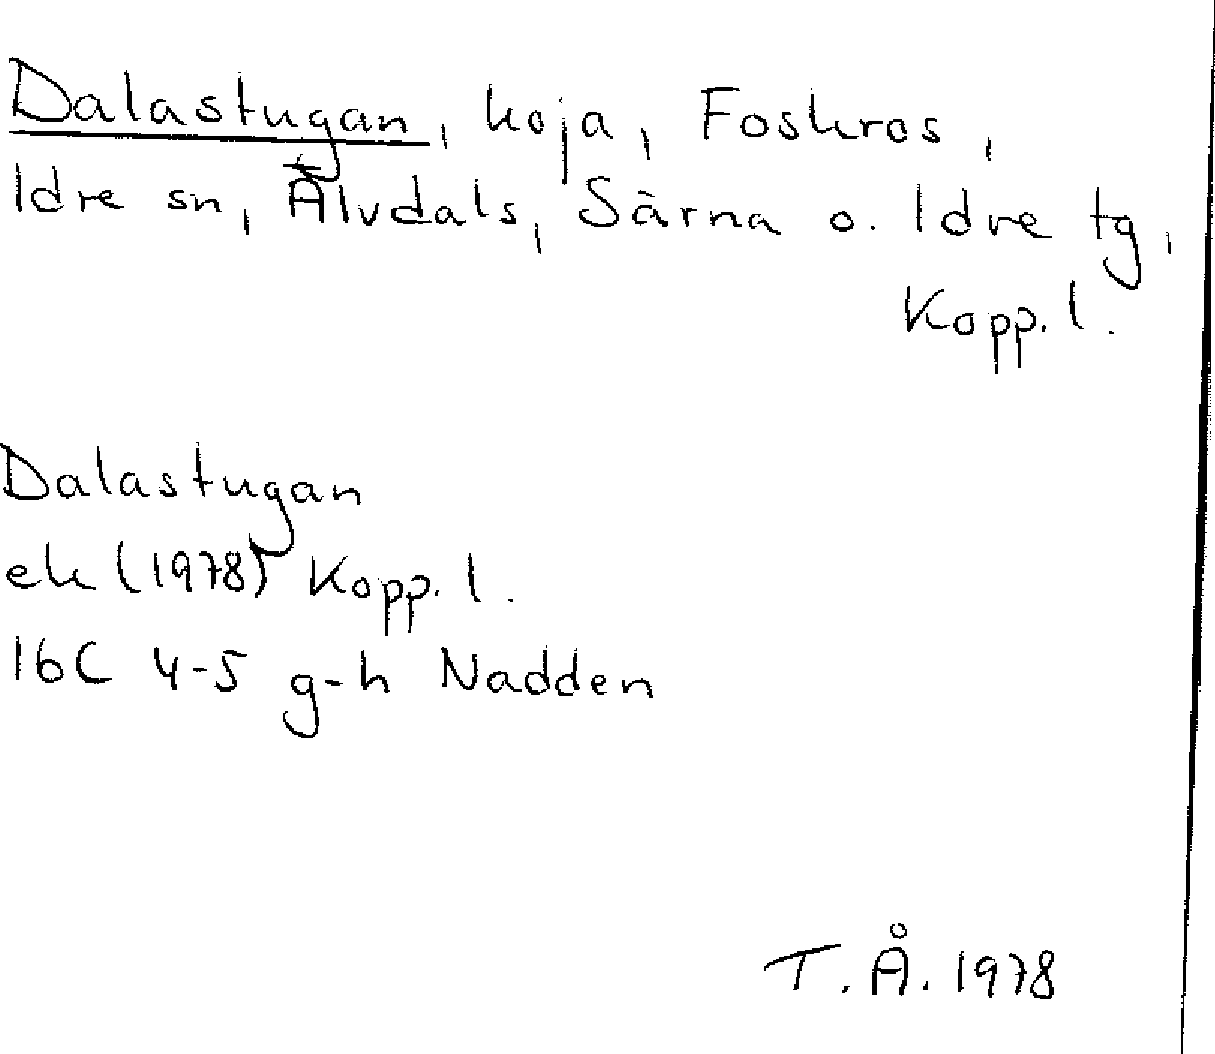 Dalastugan, koja, Foskros,
Idre sn, Älvdals, Särna o. Idre tg,
Kopp. l.
Dalastugan
ek (1978) Kopp. l.
16C 4-5 g-h Nadden
T. Å. 1978